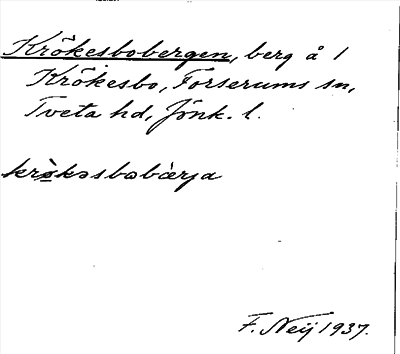 Krökesbobergen, berg å 1
Krökesbo, Forserums sn,
Tveta hd, Jönk. l.
krö̀kəsbobærja
F. Neij 1937.